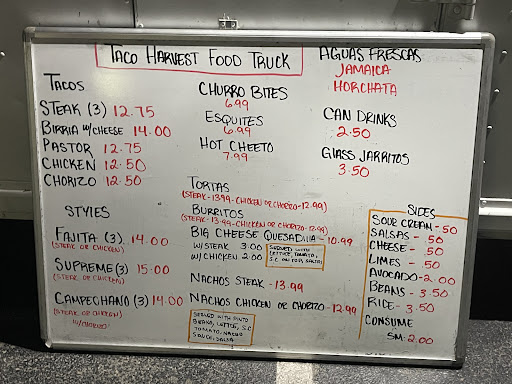 TACO HARVEST FOOD TRUCK
TACOS
STEAK (3) 12.75
BIRRIA W/CHEESE 14.00
PASTOR 12.75
CHICKEN 12.50
CHORIZO 12.50
STYLES
FAJITA (3) 14.00
(STEAK OR CHICKEN)
SUPREME (3) 15.00
(STEAK OR CHICKEN)
CAMPECHANO (3) 14.00
(STEAK OR CHICKEN)
W/CHORIZO
CHURRO BITES
6.99
ESQUITES
6.99
HOT CHEETO
7.99
TORTAS
(STEAK-13.99-CHICKEN OR CHORIZO-12.99)
BURRITOS
(STEAK-13.99-CHICKEN OR CHORIZO-12.99)
BIG CHEESE QUESADILLA-10.99
W/STEAK 3.00
W/CHICKEN 2.00
SERVED WITH
LETTICE, TOMATO,
S.C
NACHOS STEAK-13.99
NACHOS CHICKEN OR CHORIZO-12.99
SERVED WITH PINTO
BEANS, LETTICE, S.C
TOMATO, NACHO
SAUCE, SALSA
AGUAS FRESCAS
JAMAICA
HORCHATA
CAN DRINKS
2.50
GLASS JARRITOS
3.50
SIDES
SOUR CREAM-.50
SALSAS-.50
CHEESE-.50
LIMES-.50
AVOCADO-2.00
BEANS-3.50
RICE-3.50
CONSUME
SM-2.00